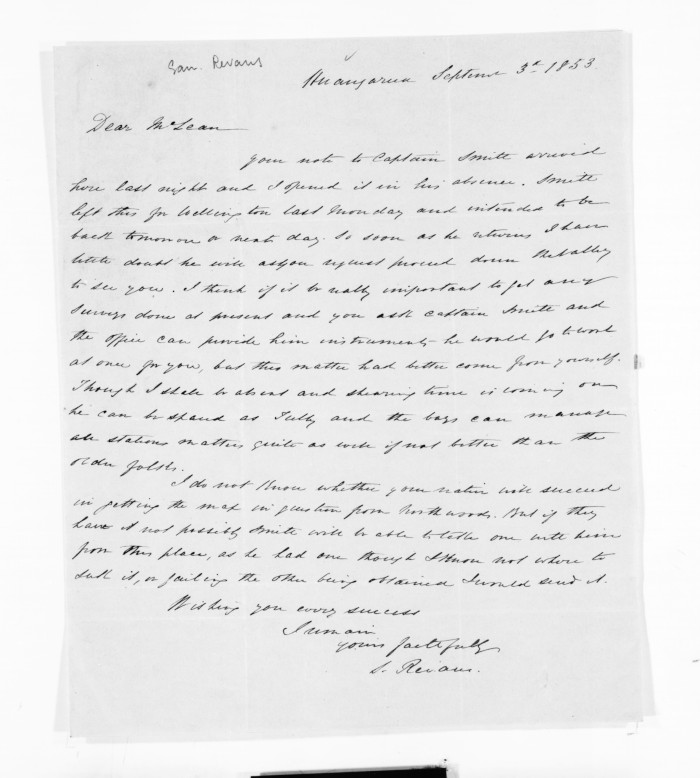 Sam. Revans
Huangarua Septem 3d 1853
Dear McLean
your note to Captain Smith arrived
here last night and I opened it in his absence. Smith
left this for Wellington last Monday and intended to be
back tomorrow or next day. So soon as he returns I have
little doubt he will as you request proceed down the valley
to see you. I think if it be really important to get any
surveys done at present and you ask Captain Smith and
the office can provide him instruments he would go to work
at once for you, but this matter had better come from yourself.
Though I shall be absent and shearing time is coming on
he can be spared as Tully and the boys can manage
all stations matters quite as well if not better than the
older folks.
I do not know whether your native will succeed
in getting the map in question from Northwoods. But if they
have it not possibly Smith will be able to take one with him
from this place, as he had one though I know not where to
seek it, or failing the other being obtained I would send it.
Wishing you every success
I remain
yours faithfully
S. Revans.